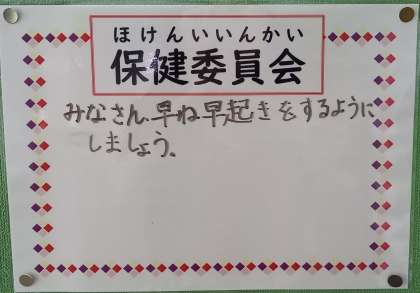 ほけんいいんかい
保健委員会
みなさん、早ね早起きをするように
しましょう。